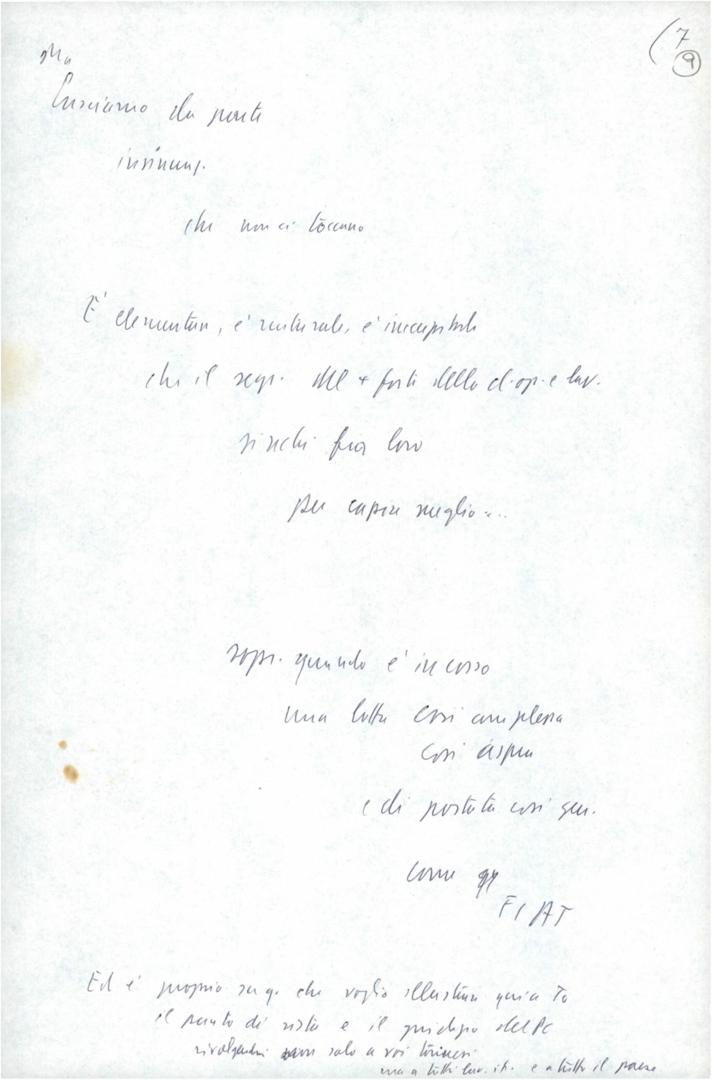 (7
9
Ma
Lasciamo da parte
insinuaz.
che non ci toccano
E' elementare, è naturale, è inecepibile
che il segr. del + forte della cl. op. e lav.
si rechi fra loro
per capire meglio...
sopr. quando è in corso
una lotta così complessa
così aspra
e di portata così gen.
come qq
FIAT
Ed è proprio su q. che voglio illustrare qui a To
il punto di vista e il giudizio del PC
rivolgendomi non solo a voi torinesi
ma a tutti lav. it. e a tutto il paese